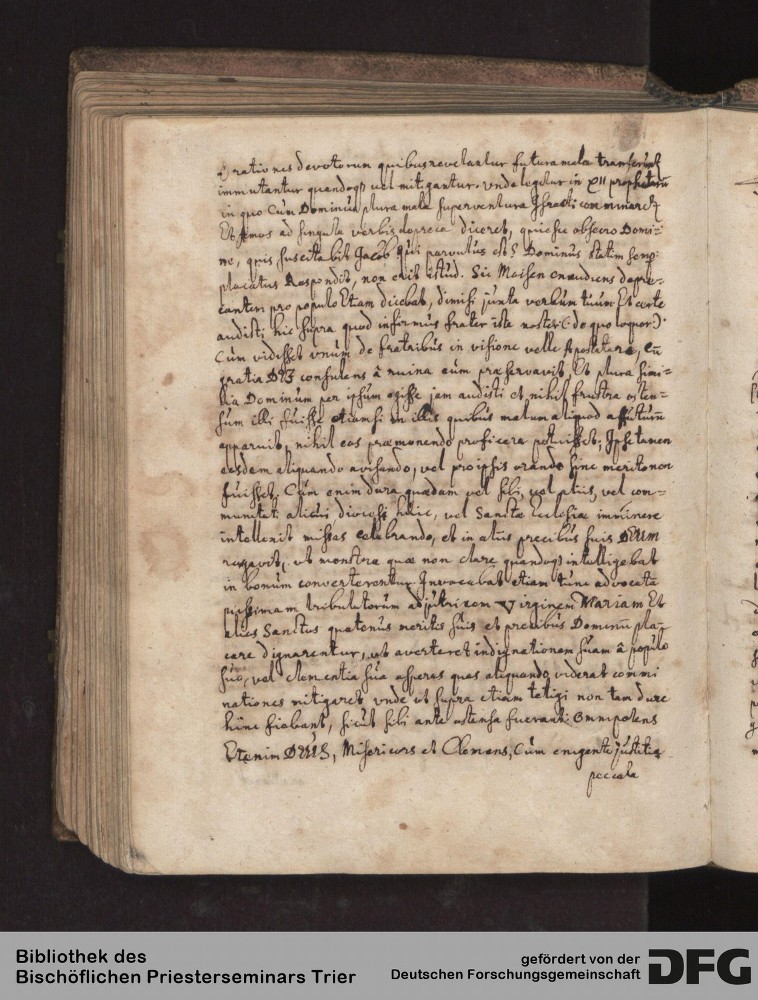 Orationes devotorum quibus revelantur futura mala transferunt
immutantur quandoq vel mitigantur, unde legitur in XII prophetaru
in quo Cum Dominus plura mala superventura Israeli
Et Amos ad singula verbis depreca diceret, quiesce obsecro Domi=
ne, quis suscitabit Jacob quia parvulus est? Dominus statim
placatus Respondit, non erit istud. Sic Moisen exaudiens depre-
cantem pro populo Etiam dicebat, dimisi juxta verbum tuum Et certe
audisti hic supra quod infirmus frater iste noster (:de quo loquor:)
Cum vidisset unum de fratribus in visione velle Apostatare, cũ
gratia consulens â ruina eum praeservavit, Et plura simi=
lia Dominum per ipsum egisse jam audisti et nihil frustra osten=
sum illi fuisse etiamsi in illis quibus malum aliquod affuturũ
apparuit, nihil eos praemonendo proficere potuisset; Ipse tamen
eosdem aliquando avisando, vel pro ipsis orando sine merito non
fuisset. Cum enim dura quaedam vel sibi, vel aliis, vel com=
munitati alicui huic, vel Sanctae Ecclesiae imminere
intellexit missas celebrando, et in aliis precibus suis DEUM
rogavit, ut monstra quae non clare quandoq intelligebat
in bonum converterentur. Invocabat etiam tunc advocatã
piissimam tribulatorum adjutricem Virginem Mariam Et
alios Sanctos quatenus meritis suis et precibus Dominũ pla-
care dignarentur, ut averteret indignationem suam â populo
suo, vel clementia sua asperas quas aliquando viderat commi
nationes mitigaret unde ut supra etiam tetigi non tam dure
hinc fiebant, sicut sibi ante ostensa fuerant: Omnipotens
Etenim DEUS, Misericors et Clemens, Cum exigente justitia
peccata
Bibliothek des
Bischöflichen Priesterseminars Trier
gefördert von der
Deutschen Forschungsgemeinschaft
DFG